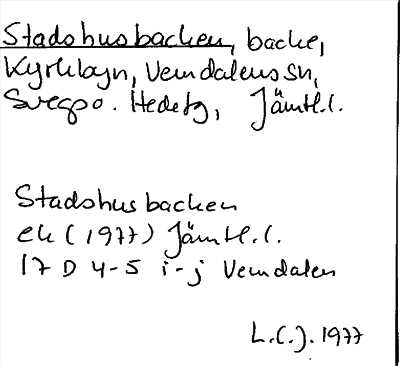 Stadshusbacken, backe,
Kyrkbyn, Vemdalens sn,
Svegs po. Hede tg, Jämtl.l.
Stadshusbacken
ek (1977) Jämtl.l.
17 D 4-5 i-j Vemdalen
L.C.J. 1977